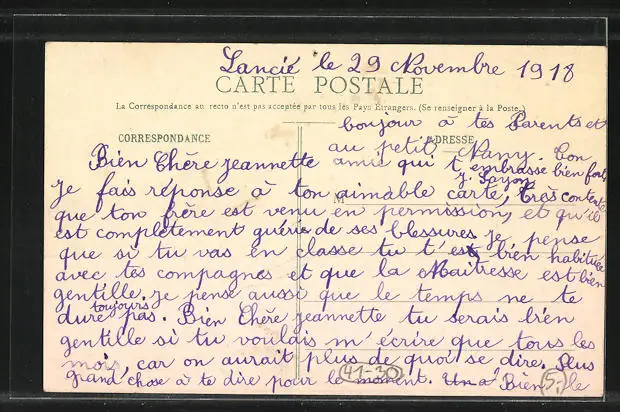 Lancié le 29 Novembre 1918
CARTE POSTALE
La Correspondance au recto n'est pas acceptée par tous les Pays Etrangers. (Se renseigner à la Poste.)
bonjour à tes Parents et
CORRESPONDANCE
ADRESSE
au petit Nany. Ton
amie qui t'embrasse bien fort
Bien Chère Jeannette
Je fais réponse à ton aimable carte, très contente
M
que ton frère est venu en permission, et qu'il
est complètement guérie de ses blessures je pense
que si tu vas en classe tu t'es bien habituée
avec tes compagnes et que la Maitresse est bien
gentille. je pense aussi que le temps ne te
dure toujours pas. Bien Chère Jeannette tu serais bien
gentille si tu voulais m'écrire que tous les
mois, car on aurait plus de quoi se dire. Plus
grand chose à te dire pour le moment. Un Bien le
41-30
5.-